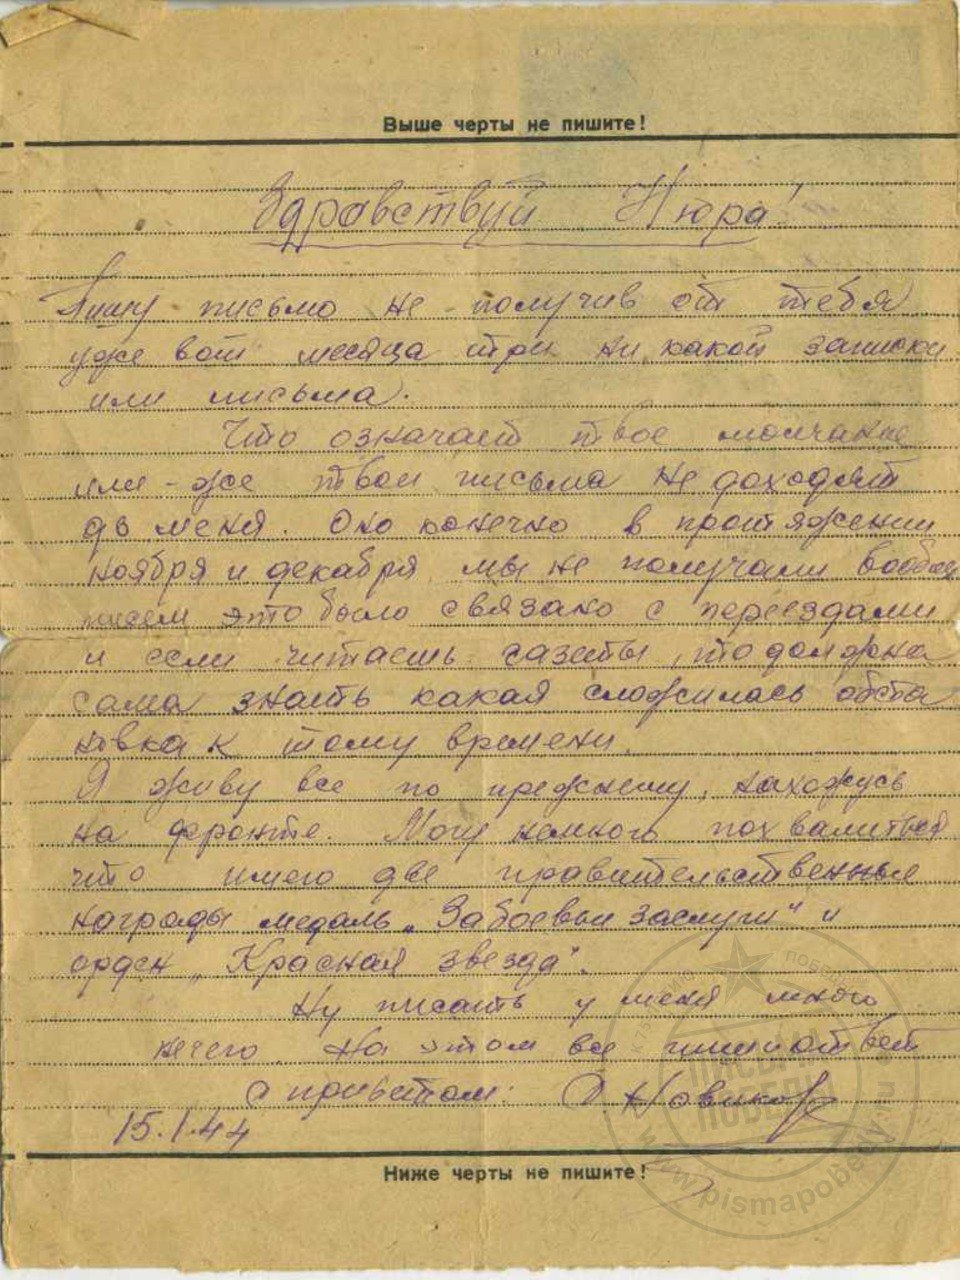 Выше черты не пишите!
Здравствуй Нюра!
Пишу письмо не получив от тебя
уже вот месяца три ни какой записки
или письма.
Что означает твое молчание
или-же твои письма не доходят
до меня. Оно конечно в протяжении
ноября и декабря мы не получали вообще
писем это было связано с переездами
и если читаешь газеты, то должна
сама знать какая сложилась обста
новка к тому времени.
Я живу все по прежнему, нахожусь
на фронте. Могу немного похвалиться
что имею две правительственные
награды медаль „За боевыи заслуги" и
орден „Красная звезда".
Ну писать у меня много
нечего. На этом все пиши ответ
с приветом: Новиков
15.1.44
Ниже черты не пишите!
ПИСЬМА
ПОБЕДЫ
www.pismapobedy.ru